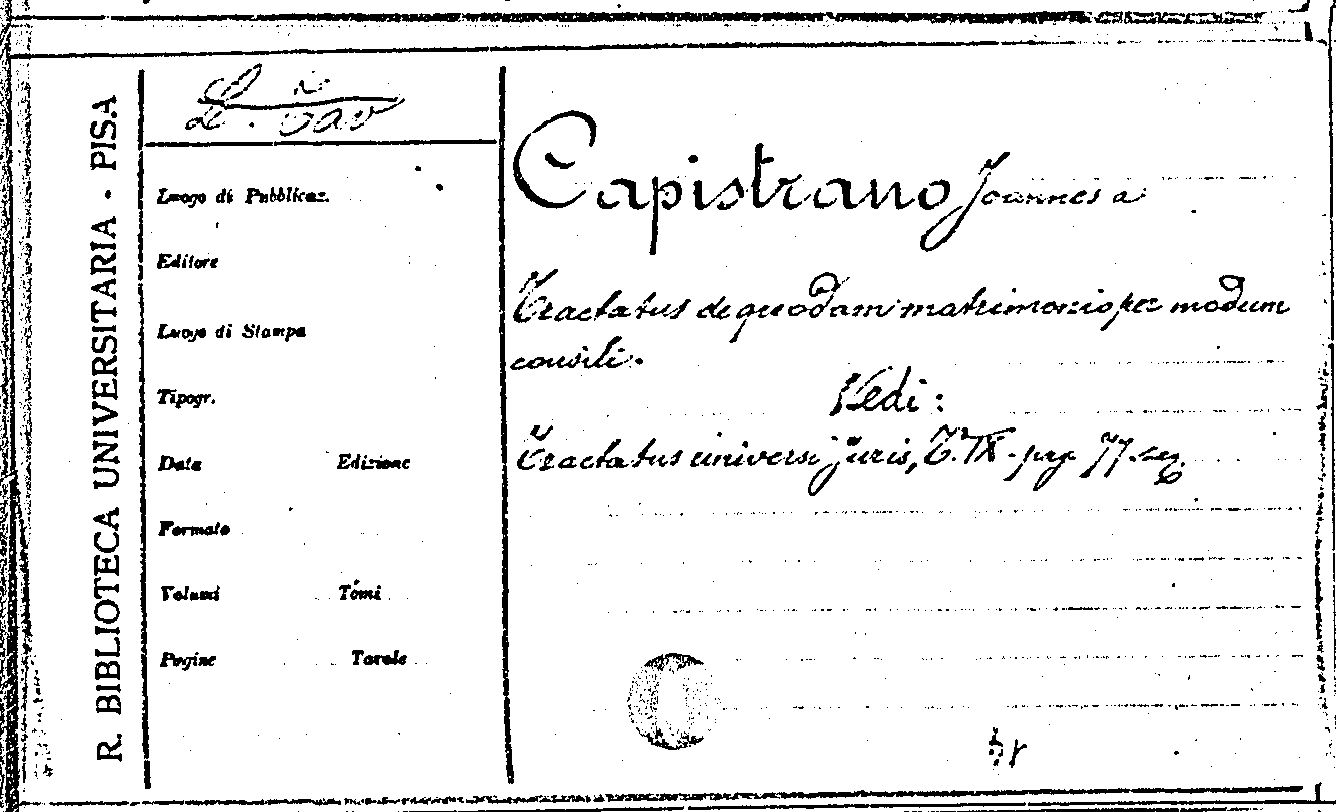 R. BIBLIOTECA UNIVERSITARIA · PISA
Luogo di Pubblicaz.
Editore
Luogo di Stampa
Tipogr.
Data Edizione
Formato
Volumi Tomi
Pagine Tavole
Capistrano Joannes a
Tractatus de quodam matrimonio per modum
consili.
Vedi:
Tractatus universi juris, T. IX. pag 77. seq